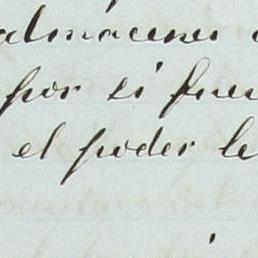 almacenes
por si fue
el poder le